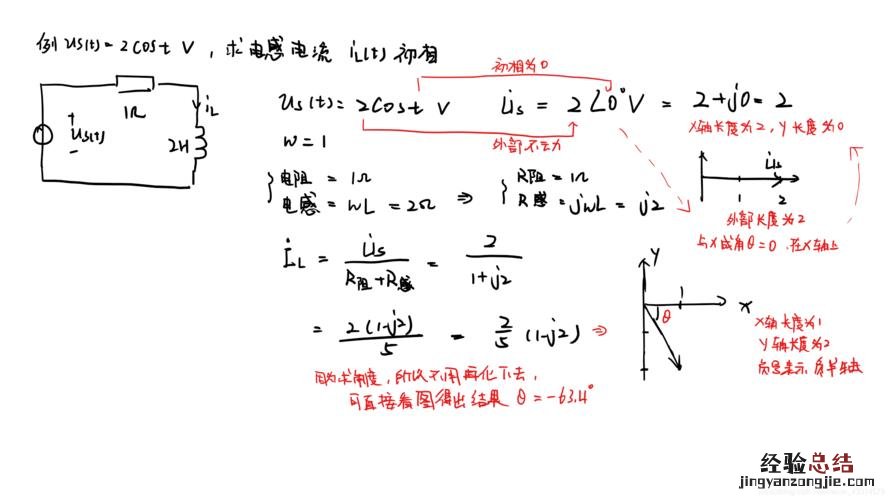 例 us(t)=2cost V，求电感电流 iL(t) 初相
1Ω
iL
+
us(t)
-
2H
初相为0
us(t)= 2cost V U̇s = 2∠0° V = 2+j0=2
外部不出力
x轴长度为2，y长度为0
w=1
电阻 = 1Ω
电感 = wL = 2Ω ⇒
R阻 = 1Ω
R感 = jwL = j2
U̇s
1 2
外部长度为2
与x成角θ=0 在x轴上
İL = U̇s / (R阻+R感) = 2 / (1+j2)
= 2(1-j2) / 5 = 2/5 (1-j2) ⇒
y
1
x
θ
x轴长度为1
y轴长度为2
负号表示 负半轴
因为求角度，所以不用再化下去，
可直接看图得出结果 θ=-63.4°
经验总结
jingyanzongjie.com